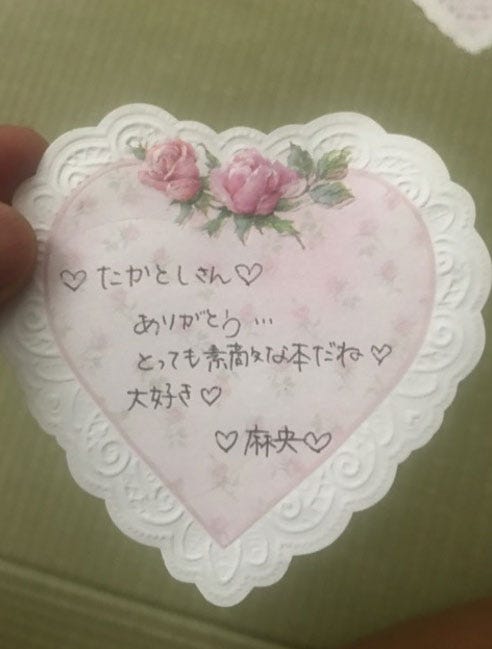 ♡たかとしさん♡
ありがとう…
とっても素敵な本だね♡
大好き♡
♡麻央♡